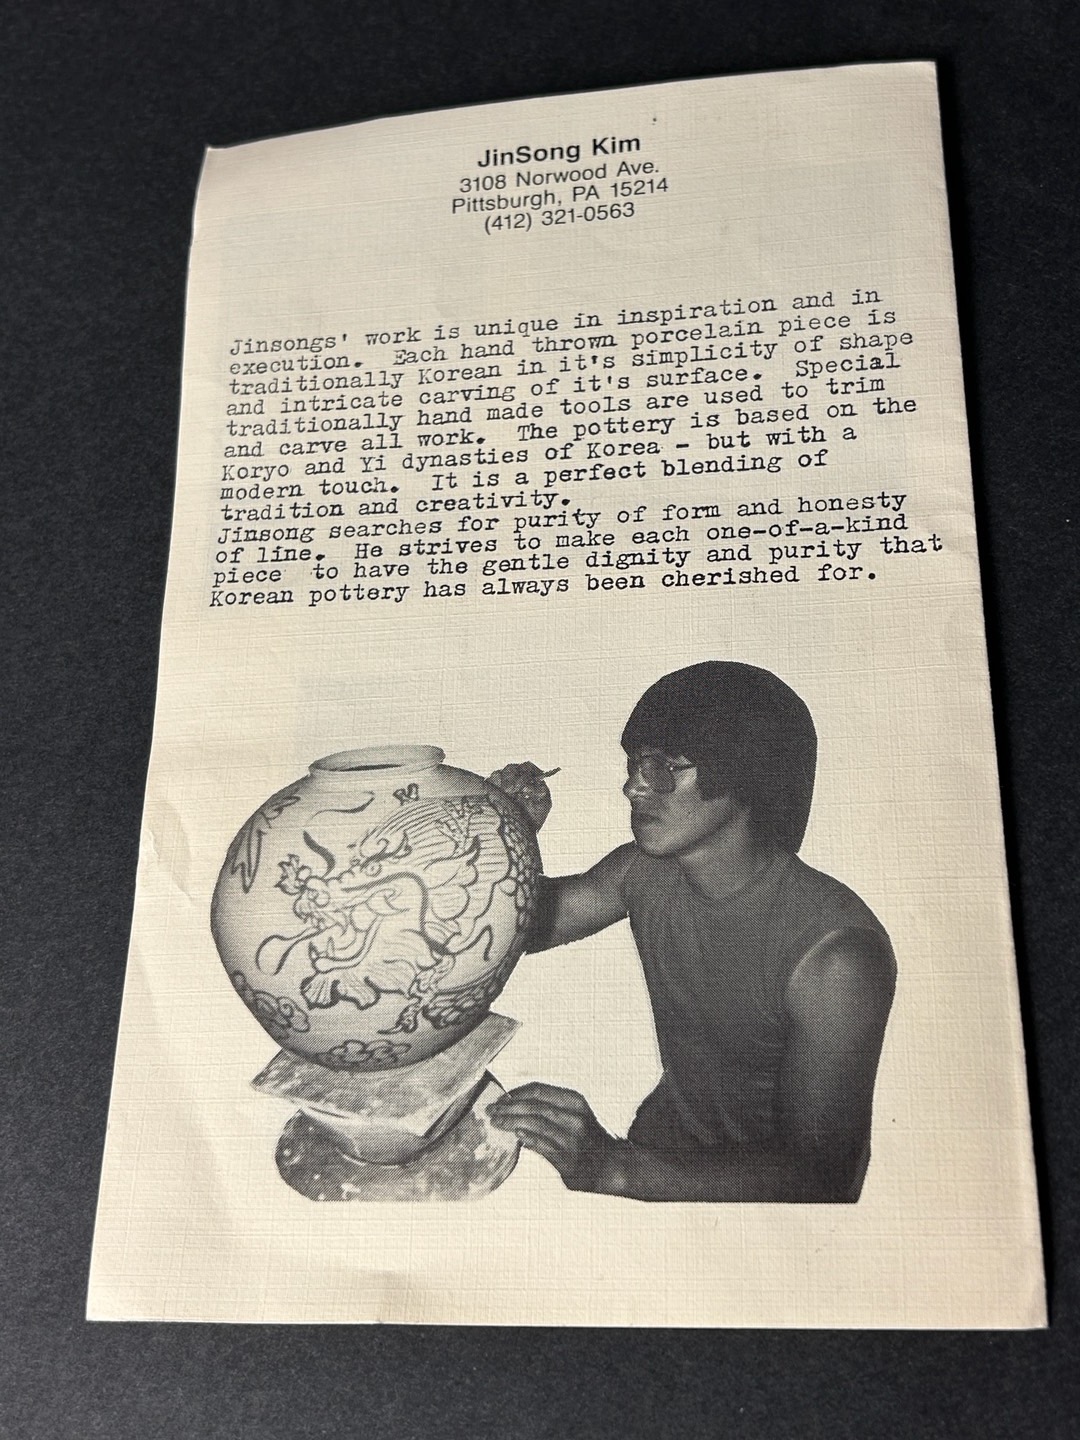 JinSong Kim
3108 Norwood Ave.
Pittsburgh, PA 15214
(412) 321-0563
Jinsongs' work is unique in inspiration and in
execution. Each hand thrown porcelain piece is
traditionally Korean in it's simplicity of shape
and intricate carving of it's surface. Special
traditionally hand made tools are used to trim
and carve all work. The pottery is based on the
Koryo and Yi dynasties of Korea - but with a
modern touch. It is a perfect blending of
tradition and creativity.
Jinsong searches for purity of form and honesty
of line. He strives to make each one-of-a-kind
piece to have the gentle dignity and purity that
Korean pottery has always been cherished for.